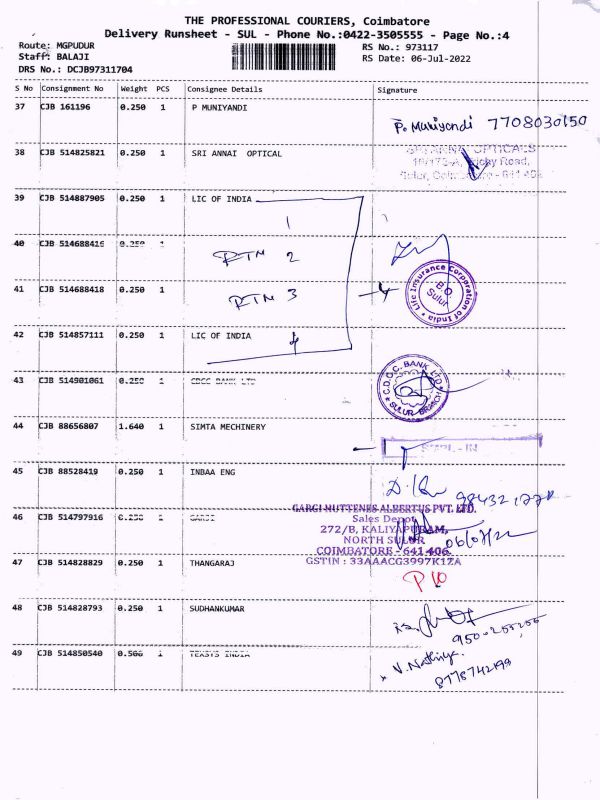 THE PROFESSIONAL COURIERS, Coimbatore
Delivery Runsheet - SUL - Phone No.:0422-3505555 - Page No.:4
Route: MGPUDUR
Staff: BALAJI
DRS No.: DCJB97311704
RS No.: 973117
RS Date: 06-Jul-2022
S No Consignment No Weight PCS Consignee Details Signature
37 CJB 161196 0.250 1 P MUNIYANDI
P. Muniyandi 7708030150
38 CJB 514825821 0.250 1 SRI ANNAI OPTICAL
OPTICALS
Road,
Sulur,
39 CJB 514887905 0.250 1 LIC OF INDIA
1
40 CJB 514688416 0.250 1
RTN 2
41 CJB 514688418 0.250 1
RTN 3
4
Life Insurance Corporation of India
B.O.
Sulur
42 CJB 514857111 0.250 1 LIC OF INDIA
4
43 CJB 514901061 0.250 1 CDCC BANK LTD
C.D.C.C. BANK LTD
SULUR BRANCH
44 CJB 88656807 1.640 1 SIMTA MECHINERY
45 CJB 88528419 0.250 1 INBAA ENG
GARGI HUTTENES ALBERTUS PVT. LTD.
46 CJB 514797916 1
Sales Depot
272/B, KALIYAPURAM,
NORTH SULUR
COIMBATORE - 641 406.
GSTIN : 33AAACG3997K1ZA
06/07/22
47 CJB 514828829 0.250 1 THANGARAJ
P10
48 CJB 514828793 0.250 1 SUDHANKUMAR
49 CJB 514850540 0.500 1 TEXSYS INDIA
V. Nathiya.
8778742199